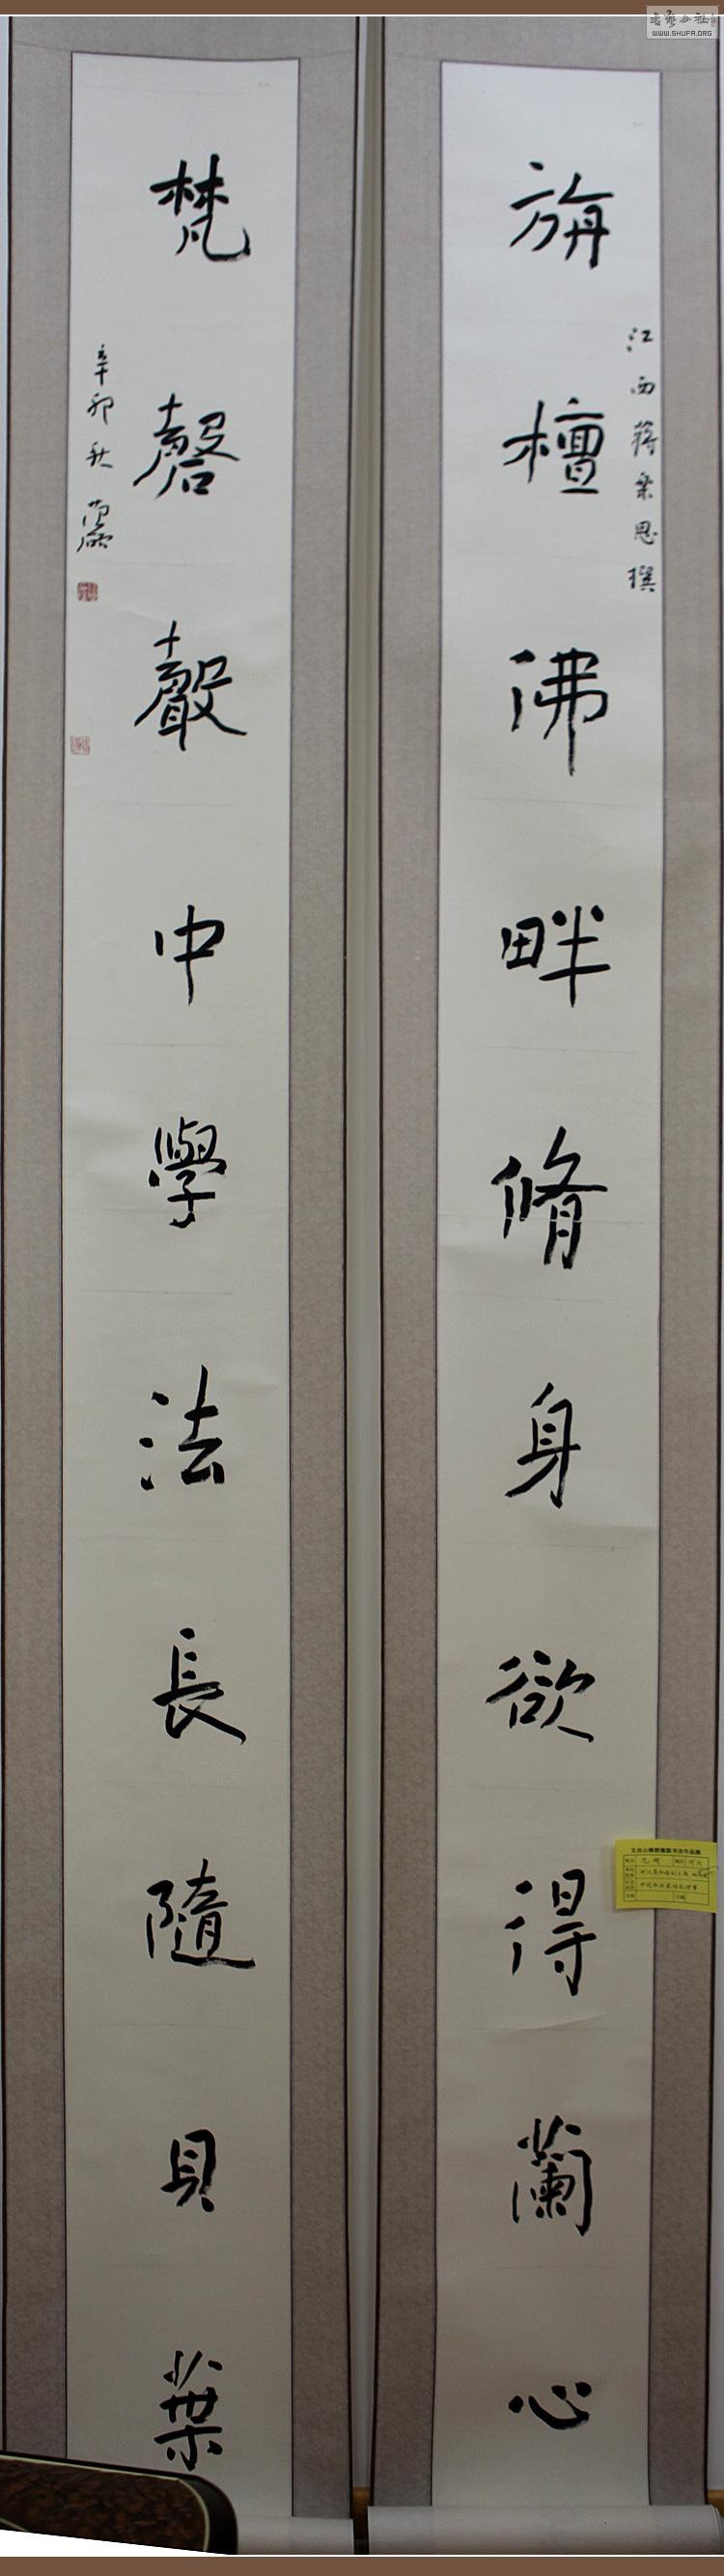 旃檀佛畔脩身欲得蘭心
江西蔣業思撰
梵磬聲中學法長隨貝葉
辛卯秋
WWW.SHUFA.ORG